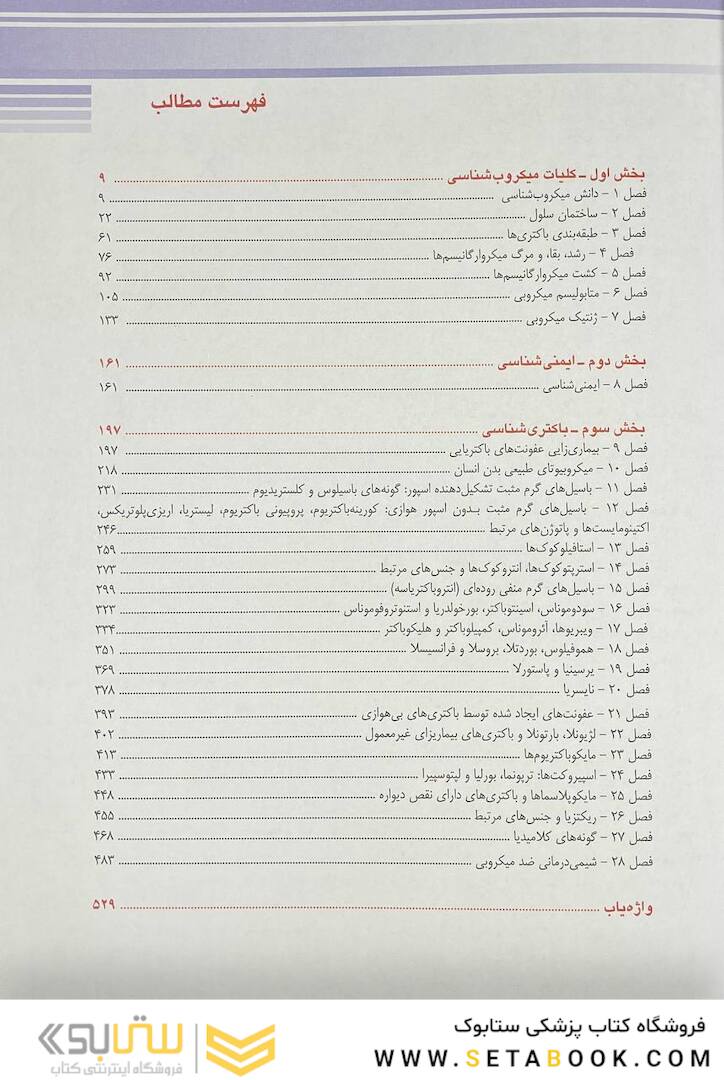 فهرست مطالب
بخش اول – کلیات میکروب‌شناسی ........ ۹
فصل ۱ – دانش میکروب‌شناسی ........ ۹
فصل ۲ – ساختمان سلول ........ ۲۲
فصل ۳ – طبقه‌بندی باکتری‌ها ........ ۶۱
فصل ۴ – رشد، بقاء و مرگ میکروارگانیسم‌ها ........ ۷۶
فصل ۵ – کشت میکروارگانیسم‌ها ........ ۹۲
فصل ۶ – متابولیسم میکروبی ........ ۱۰۵
فصل ۷ – ژنتیک میکروبی ........ ۱۳۳
بخش دوم – ایمنی‌شناسی ........ ۱۶۱
فصل ۸ – ایمنی‌شناسی ........ ۱۶۱
بخش سوم – باکتری‌شناسی ........ ۱۹۷
فصل ۹ – بیماری‌زایی عفونت‌های باکتریایی ........ ۱۹۷
فصل ۱۰ – میکروبیوتای طبیعی بدن انسان ........ ۲۱۸
فصل ۱۱ – باسیل‌های گرم مثبت تشکیل‌دهنده اسپور: گونه‌های باسیلوس و کلستریدیوم ........ ۲۳۱
فصل ۱۲ – باسیل‌های گرم مثبت بدون اسپور هوازی: کورینه‌باکتریوم، پروپیونی باکتریوم، لیستریا، اریزی‌پلوتریکس،
اکتینومایست‌ها و پاتوژن‌های مرتبط ........ ۲۴۶
فصل ۱۳ – استافیلوکوک‌ها ........ ۲۵۹
فصل ۱۴ – استرپتوکوک‌ها، انتروکوک‌ها و جنس‌های مرتبط ........ ۲۷۳
فصل ۱۵ – باسیل‌های گرم منفی روده‌ای (انتروباکتریاسه) ........ ۲۹۹
فصل ۱۶ – سودوموناس، اسینتوباکتر، بورخولدریا و استنوتروفوموناس ........ ۳۲۳
فصل ۱۷ – ویبریوها، آئروموناس، کمپیلوباکتر و هلیکوباکتر ........ ۳۳۴
فصل ۱۸ – هموفیلوس، بوردتلا، بروسلا و فرانسیسلا ........ ۳۵۱
فصل ۱۹ – یرسینیا و پاستورلا ........ ۳۶۹
فصل ۲۰ – نایسریا ........ ۳۷۸
فصل ۲۱ – عفونت‌های ایجاد شده توسط باکتری‌های بی‌هوازی ........ ۳۹۳
فصل ۲۲ – لژیونلا، بارتونلا و باکتری‌های بیماریزای غیرمعمول ........ ۴۰۲
فصل ۲۳ – مایکوباکتریوم‌ها ........ ۴۱۳
فصل ۲۴ – اسپیروکت‌ها: ترپونما، بورلیا و لپتوسپیرا ........ ۴۳۳
فصل ۲۵ – مایکوپلاسماها و باکتری‌های دارای نقص دیواره ........ ۴۴۸
فصل ۲۶ – ریکتزیا و جنس‌های مرتبط ........ ۴۵۵
فصل ۲۷ – گونه‌های کلامیدیا ........ ۴۶۸
فصل ۲۸ – شیمی‌درمانی ضد میکروبی ........ ۴۸۳
واژه‌یاب ........ ۵۲۹
فروشگاه کتاب پزشکی ستابوک
WWW.SETABOOK.COM
ستابوک
فروشگاه اینترنتی کتاب